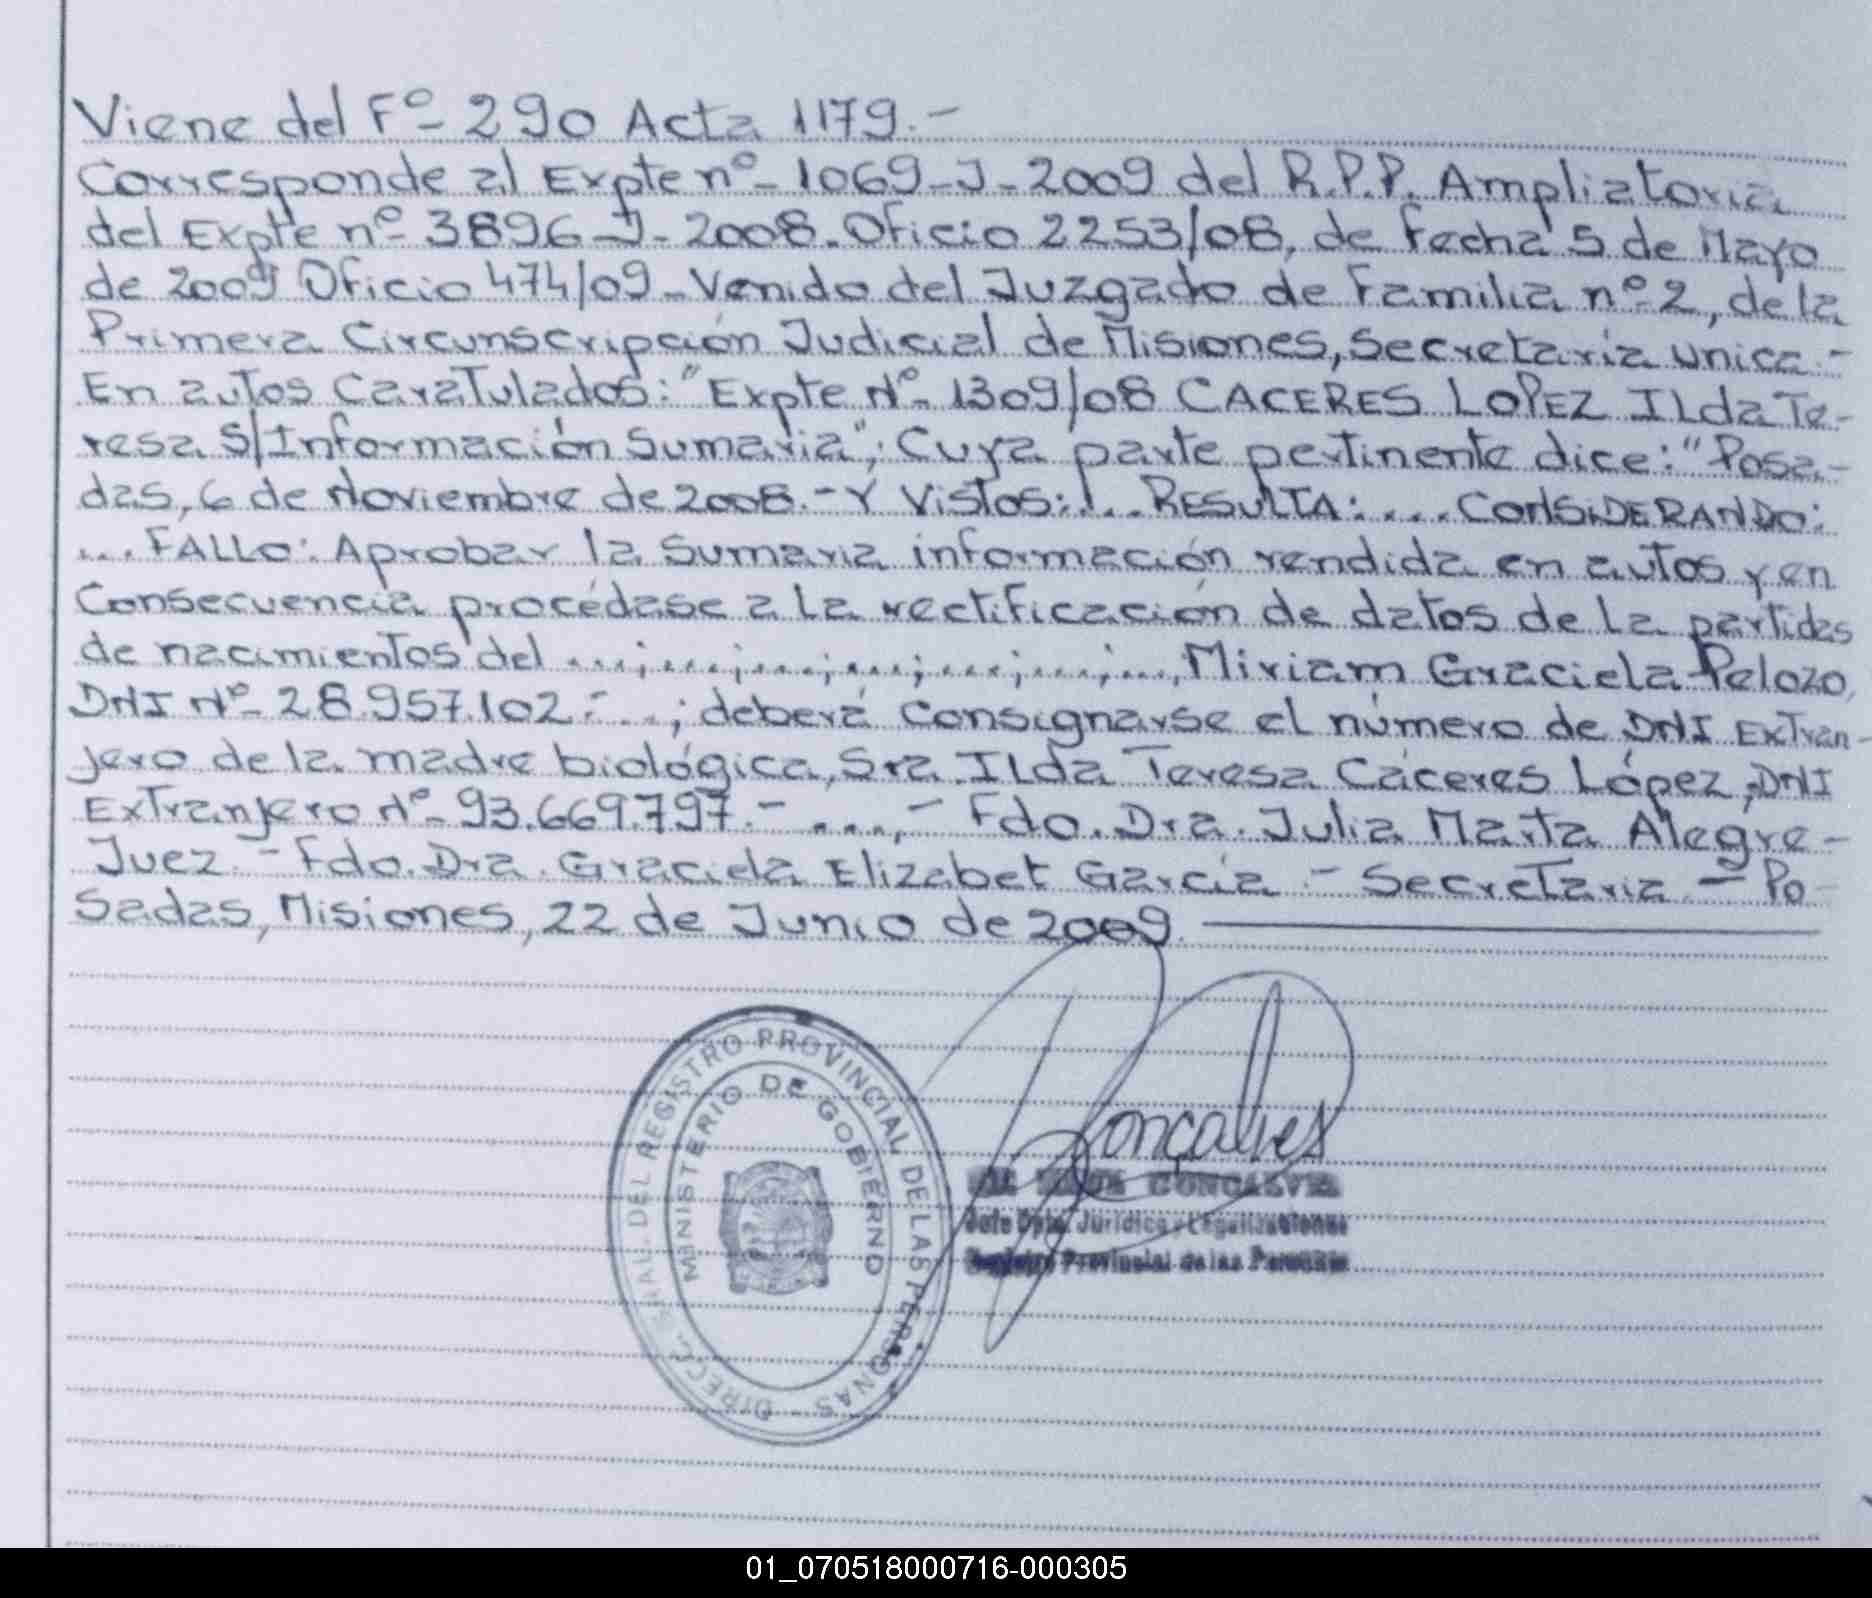 Viene del Fº- 290 Acta 1179.-
Corresponde al Expte nº- 1069-J-2009 del R.P.P. Ampliatoria
del Expte nº- 3896-J-2008. Oficio 2253/08, de fecha 5 de Mayo
de 2009 Oficio 474/09- Venido del Juzgado de Familia nº-2, de la
Primera Circunscripción Judicial de Misiones, Secretaría unica.-
En autos Caratulados: "Expte Nº- 1309/08 CACERES LOPEZ ILda Te-
resa S/Información Sumaria"; Cuya parte pertinente dice: "Posa-
das, 6 de Noviembre de 2008.- Y Vistos:... RESULTA: .... CONSIDERANDO:
... FALLO: Aprobar la Sumaria información rendida en autos y en
Consecuencia procédase a la rectificación de datos de la partidas
de nacimientos del ...;....;...;...;...;...;..., Miriam Graciela Pelozo,
DNI Nº- 28.957.102.- ...; deberá consignarse el número de DNI Extran-
jero de la madre biológica, Sra ILda Teresa Cáceres López; DNI
Extranjero Nº- 93.669.797.- ...,- Fdo. Dra. Julia Marta Alegre-
Juez.- Fdo. Dra. Graciela Elizabet García.- Secretaria - Po
sadas, Misiones, 22 de Junio de 2009.
DEL REGISTRO PROVINCIAL DE LAS PERSONAS - DIRECC.
MINISTERIO DE GOBIERNO
Gonçalves
GONCALVES
Jefe Dpto. Jurídico y Legalizaciones
Registro Provincial de las Personas
01_070518000716-000305